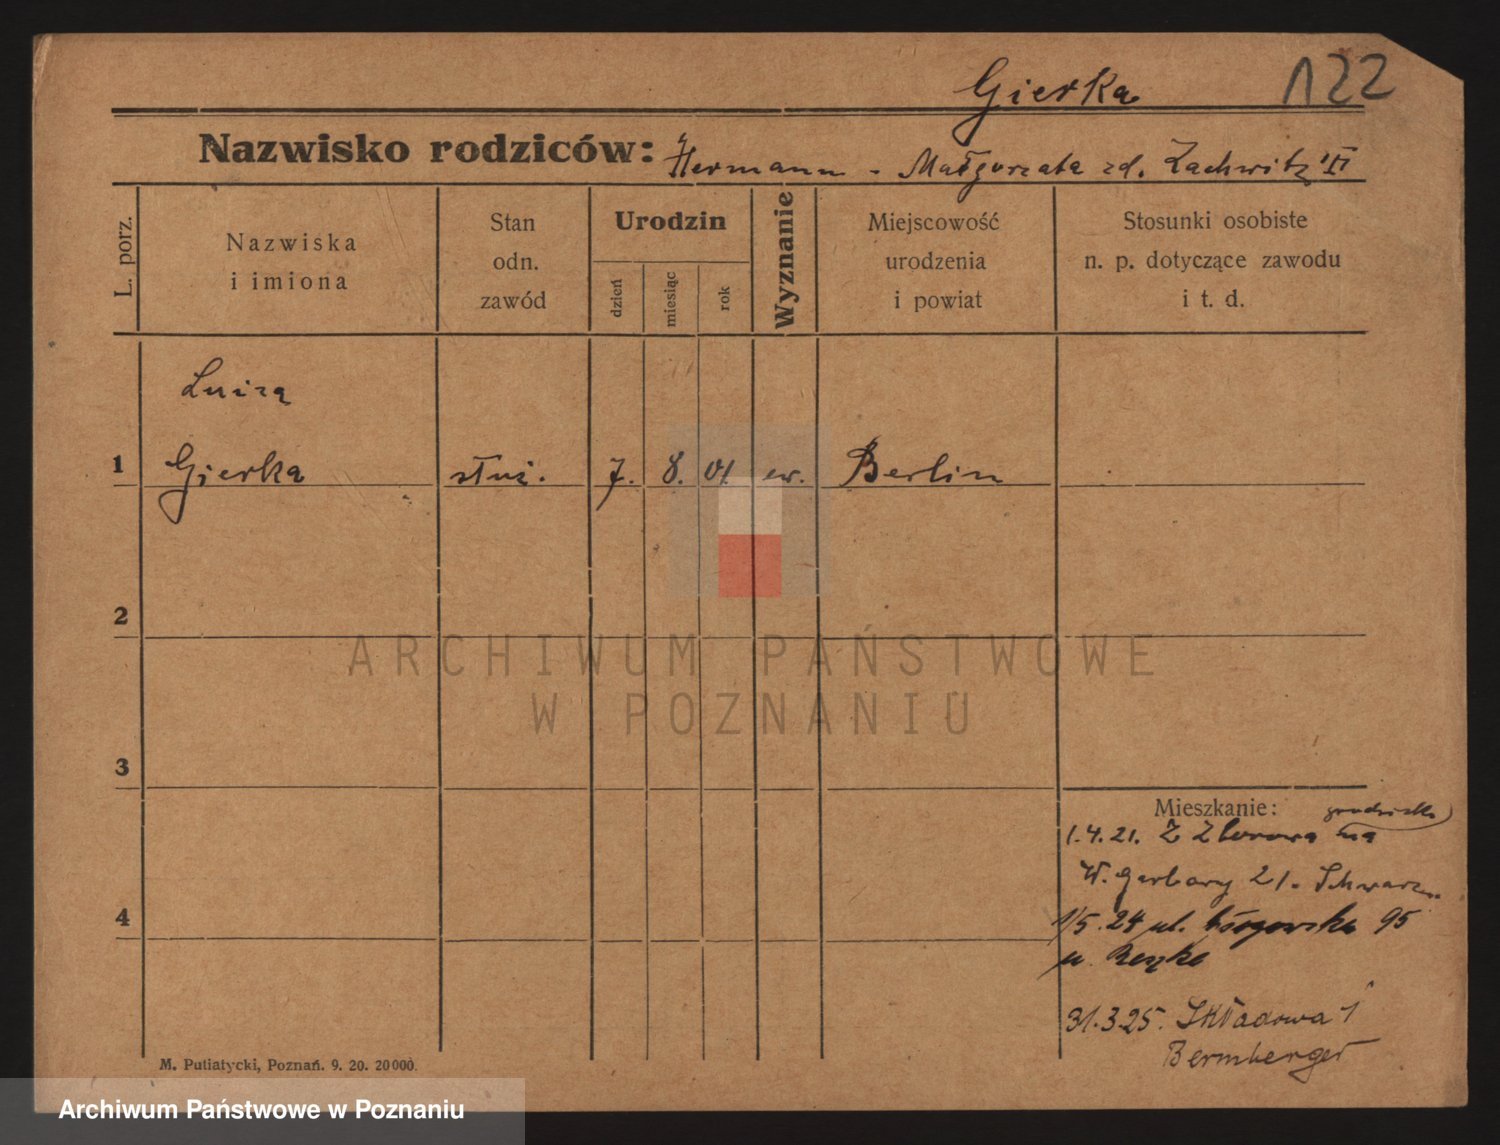 Gierka
122
Nazwisko rodziców: Hermann - Małgorzata zd. Zachwitz
L. porz.
Nazwiska
i imiona
Stan
odn.
zawód
Urodzin
dzień
miesiąc
rok
Wyznanie
Miejscowość
urodzenia
i powiat
Stosunki osobiste
n. p. dotyczące zawodu
i t. d.
Luiza
1 Gierka służ. 7. 8. 01. ew. Berlin
2
ARCHIWUM PAŃSTWOWE
W POZNANIU
3
Mieszkanie:
1.4.21. Z Zborowa na
W. Garbary 21.
4
1/5.24 ul. Głogowska 95
u
31.3.25. Składowa 1
Bermberger
M. Putiatycki, Poznań. 9. 20. 20000.
Archiwum Państwowe w Poznaniu